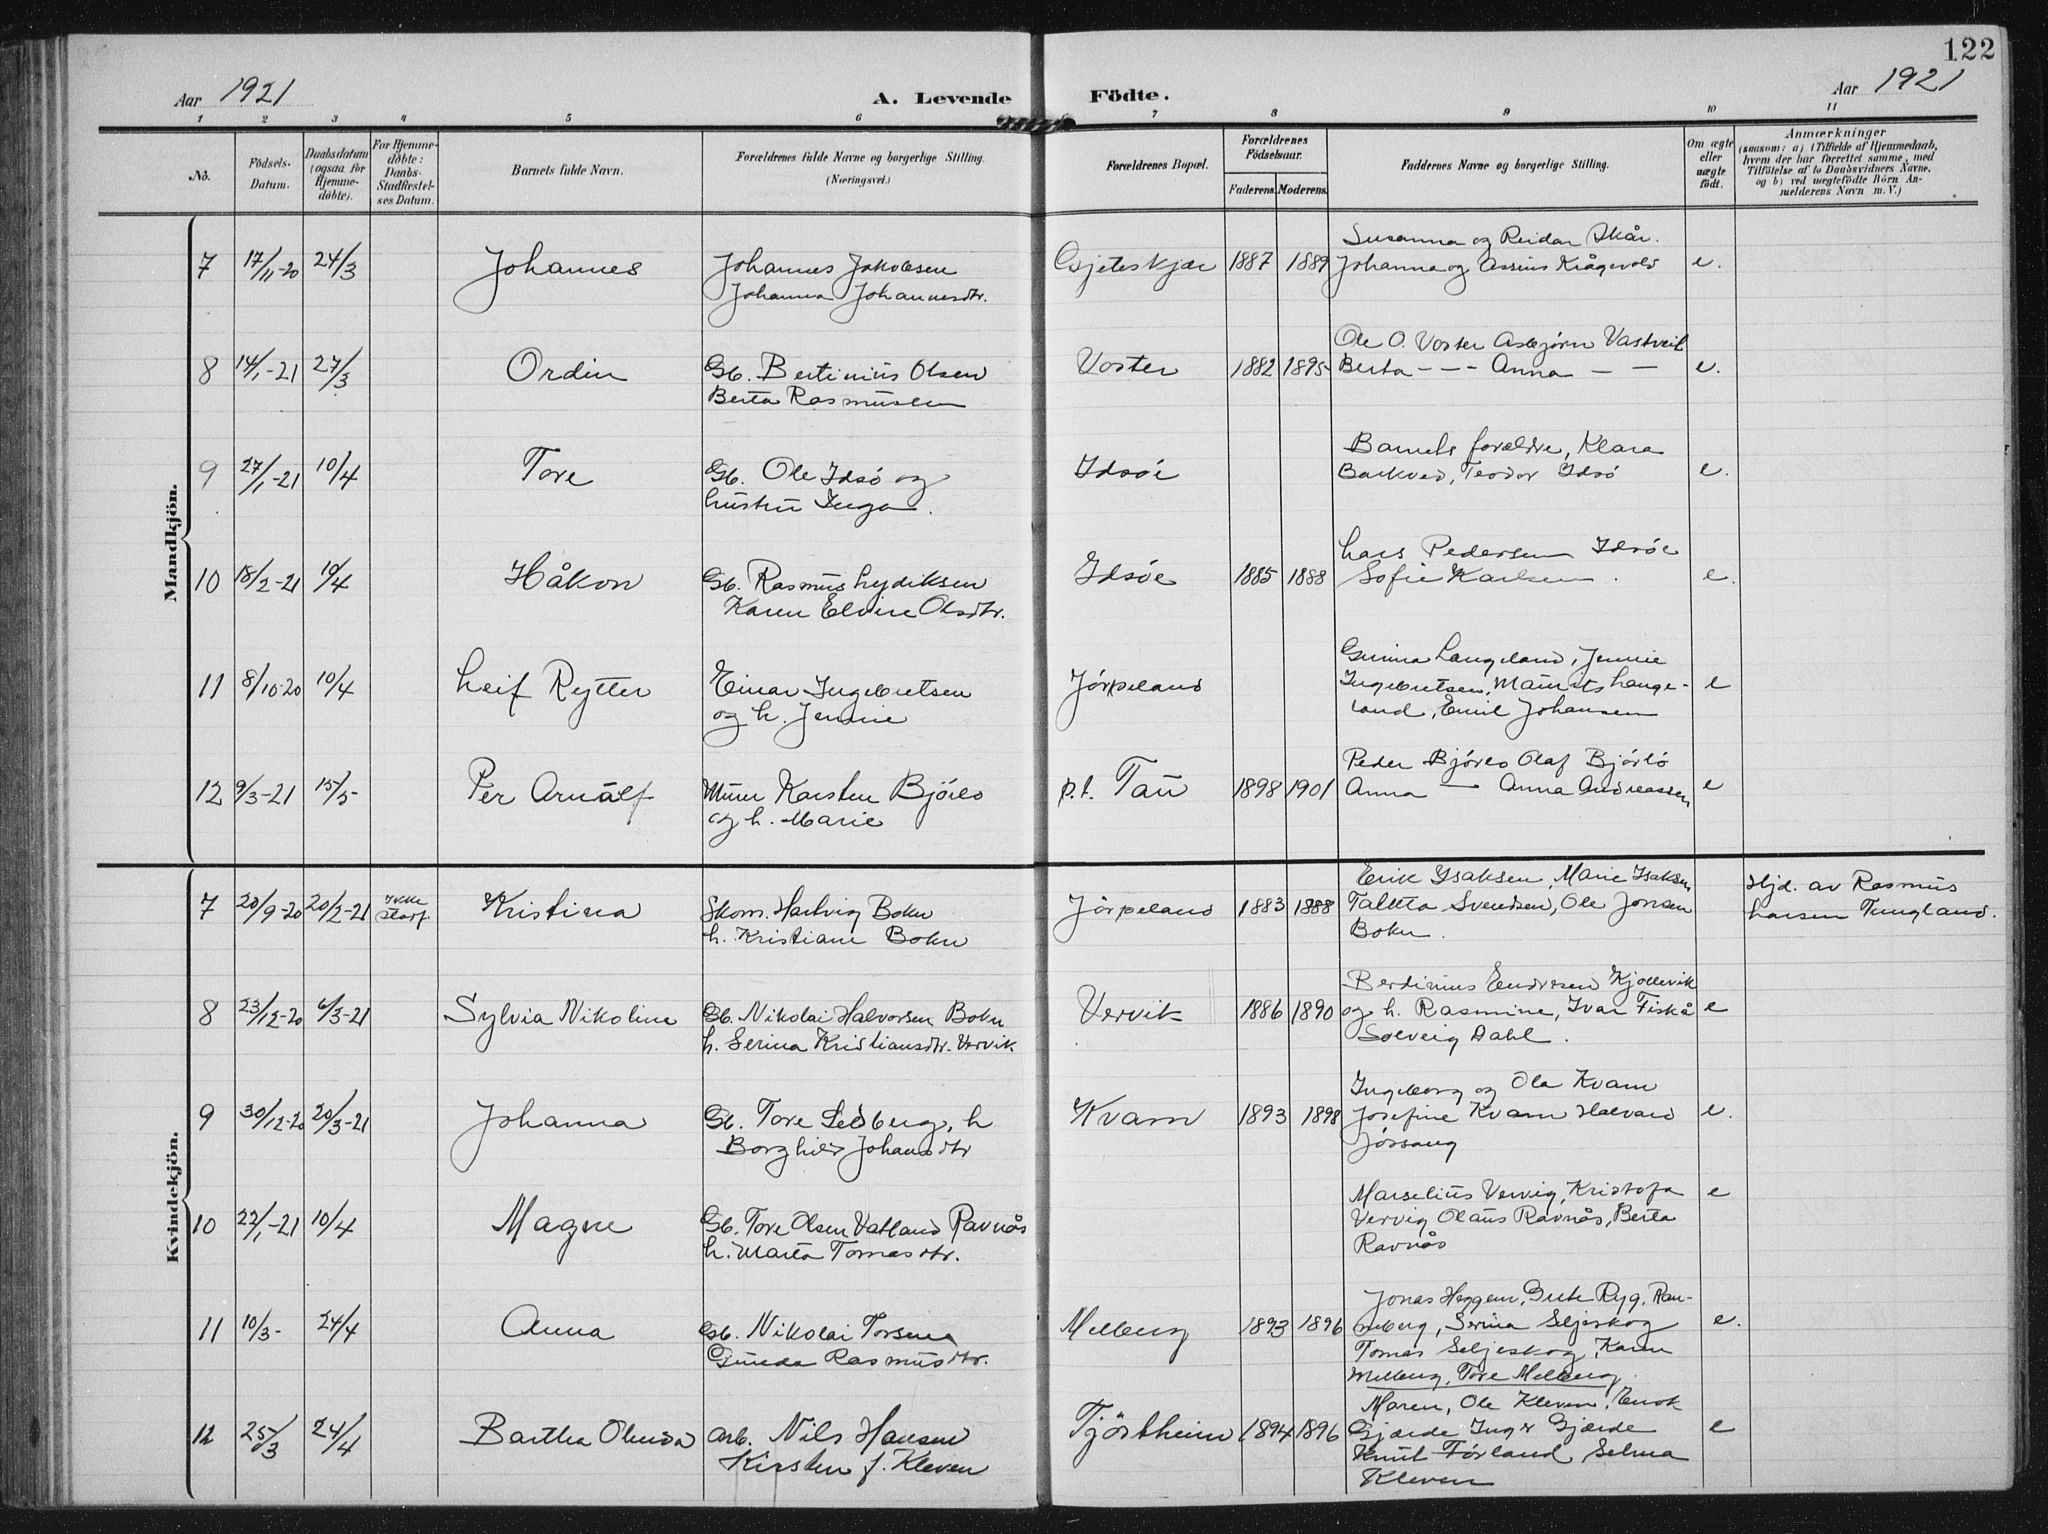 122
Aar 1921
A. Levende Födte.
Aar 1921
1 2 3 4 5 6 7 8 9 10 11
No.
Födsels-Datum.
Daabsdatum (ogsaa for Hjemme-döbte).
For Hjemme-döbte: Daabs-Stadfæstel-ses Datum.
Barnets fulde Navn.
Forældrenes fulde Navne og borgerlige Stilling.
(Næringsvei.)
Forældrenes Bopæl.
Forældrenes Födselsaar.
Faderens. Moderens.
Faddernes Navne og borgerlige Stilling.
Om ægte eller uægte födt.
Anmærkninger
(saasom: a) i Tilfælde af Hjemmedaab,
hvem der har forrettet samme, med
Tilföielse af to Daabsvidners Navne,
og b) ved uægtefödte Börn An-
melderens Navn m. V.)
Mandkjön.
Susanna og Reidar Skår.
7 17/11-20 24/3 Johannes Johannes Jakobsen 1887 1889 Johanna og Krågevold e.
Johanna Johannesdtr.
Ole O. Voster Asbjørn Vastveit
8 14/1-21 27/3 Ordin Gb. Bertinius Olsen Voster 1882 1895 Berta - - - Anna - - e.
Berta Rasmussen
Barnets forældre, Klara
9 27/1-21 10/4 Tore Gb. Ole Idsö og Idsöe Barkved, Teodor Idsö e.
hustru Inga.
Lars Pedersen Idsöe
10 18/2-21 10/4 Håkon Gb. Rasmus Lydiksen Idsöe 1885 1888 Sofie Karlsen. e.
Karen Elvine Olsdtr.
Gunna Langeland, Jennie
11 8/10-20 10/4 Leif Rytter Einar Ingebretsen Jörpeland Ingebretsen, Maurits Lange- e
og h. Jennie land, Emil Johansen
Peder Bjørlo Olaf Bjørlö
12 9/3-21 15/5 Per Arnulf Murer Karsten Bjørlo p.t. Tau 1898 1901 Anna — Anna Andreassen e
og h. Marie
Kvindekjön.
Erik Isaksen, Marie Isaksen
7 20/9-20 20/2-21 Ikke Kristina Skom. Hartvig Bokn Jörpeland 1883 1888 Svendsen, Ole Jonsen
h. Kristiane Bokn Bokn.
Hjd. av Rasmus
Larsen Tungland.
Berdinius Endresen Kjøllevik
8 23/12-20 6/3-21 Sylvia Nikoline Gb. Nikolai Halvorsen Bokn Vervik 1886 1890 og h. Rasmine, Ivar Fiskå e
h. Serina Kristiansdtr. Vervik Solveig Dahl.
Ingeborg og Ola Kvam
9 30/12-20 20/3-21 Johanna Gb. Tore Sedberg, h Kvam 1893 1898 Josefine Kvam Halvard e.
Borghild Johansdtr Jøssang
Marselius Vervig, Kristofa e
10 22/1-21 10/4 Magne Gb. Tore Olsen Vatland Ravnås Vervig Olaus Ravnås, Berta
h. Marta Tomasdtr. Ravnås
Jonas Heggem, Gute Ryg, Ran-
11 10/3- 24/4 Anna Gb. Nikolai Torsen Melberg 1893 1896 neberg, Serina Seljeskog e.
Gunda Rasmusdtr. Tomas Seljeskog, Karen
Melberg, Tore Melberg.
Maren, Ole Kleven, Enok
12 25/3 24/4 Bartha Olunda Arb. Nils Hansen Tjöstheim 1894 1896 Gjærde Inger Gjærde e
Kirsten f. Kleven Knut Førland Selma
Kleven